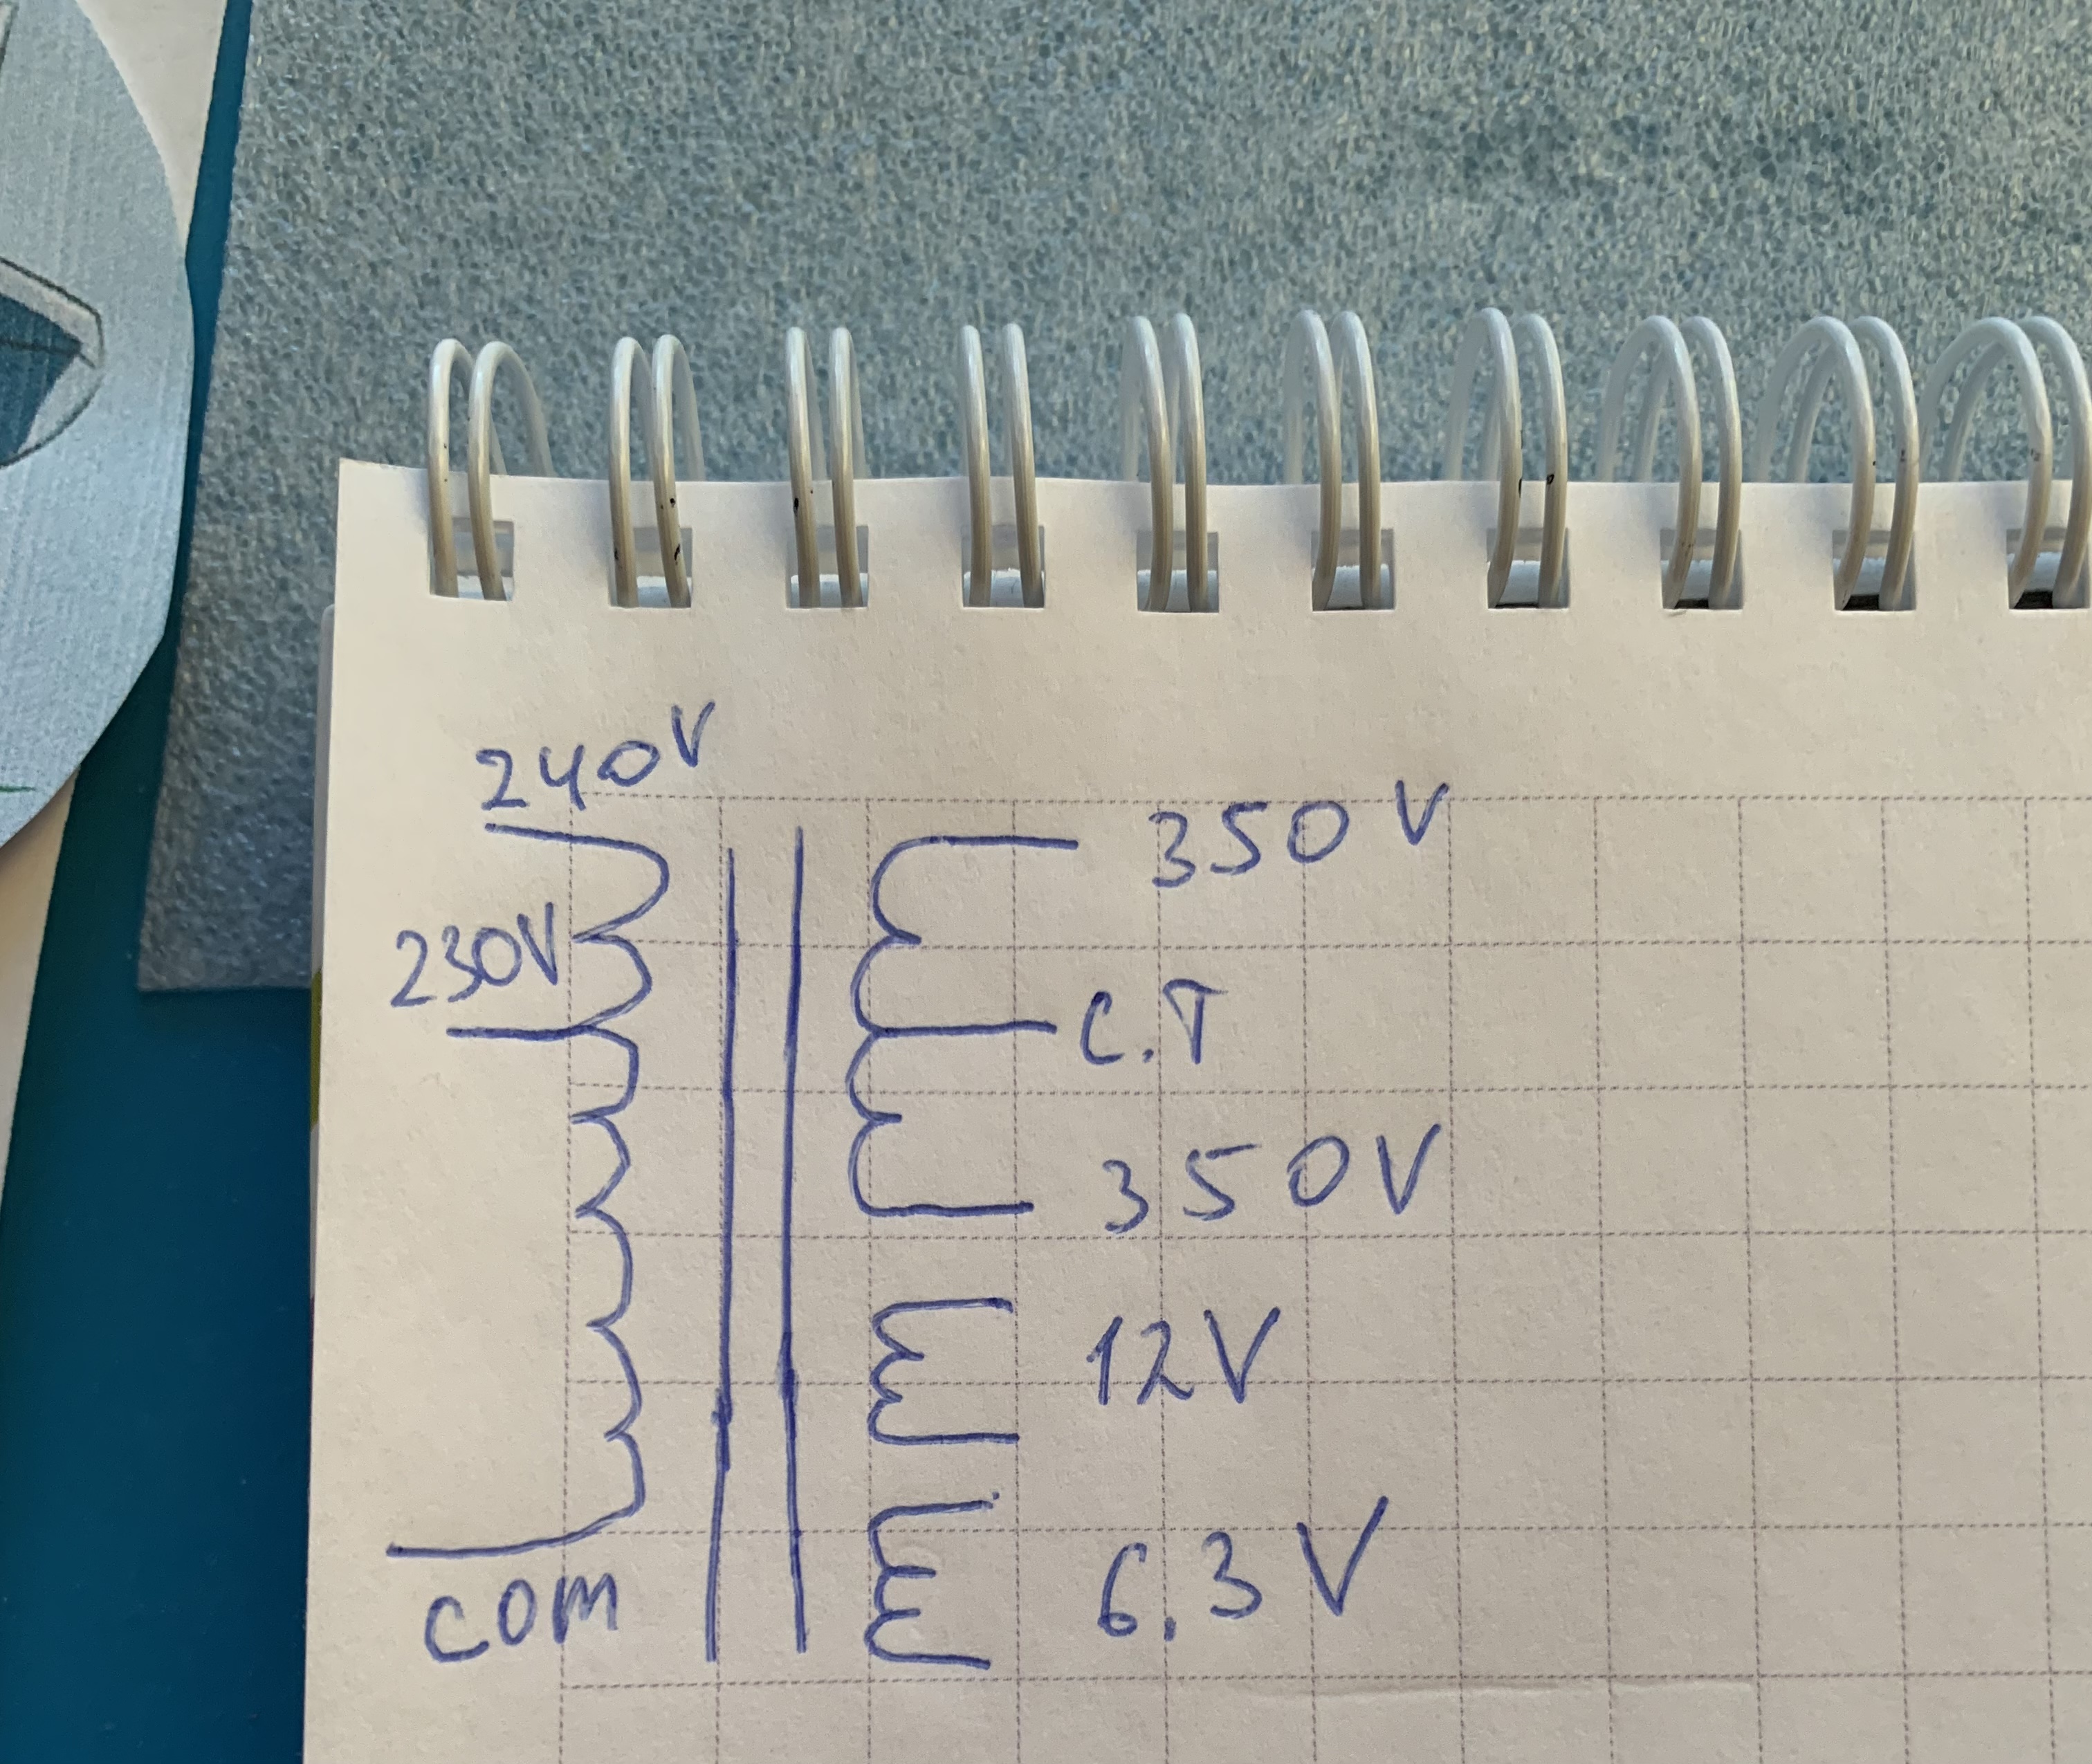 240V
350V
230V
C.T
350V
12V
6.3V
COM